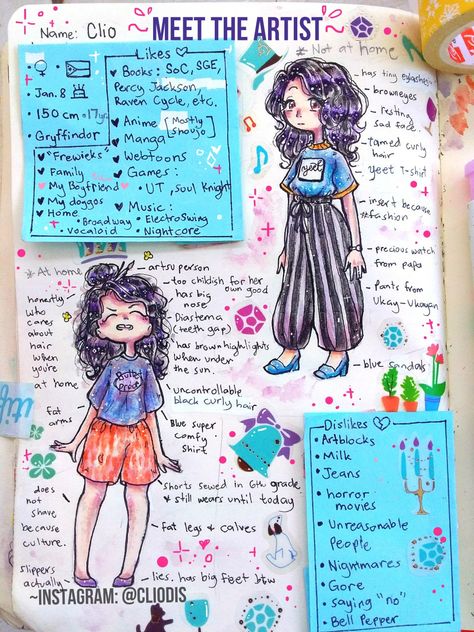 Name: Clio
MEET THE ARTIST
Likes
♥ Books: SoC, SGE,
Percy Jackson,
Raven Cycle, etc.
♥ Anime [Mostly
Shoujo]
♥ Manga
♥ Webtoons
♥ Games:
UT, Soul Knight
♥ Music:
• Broadway • ElectroSwing
• Vocaloid • Nightcore
• Jan. 8
• 150 cm • 17yo
• Gryffindor
♥ "Frewieks"
♥ Family
♥ My Boyfriend
♥ My doggos
♥ Home
* Not at home
has tiny eyelashes
browneyes
resting
sad face
Tamed curly
hair
yeet T-shirt
yeet
insert because
#fashion
precious watch
from papa
Pants from
Ukay-Ukayan
blue sandals
* At home
artsu person
too childish for her
own good
has big
nose
Diastema
(teeth gap)
has brown highlights
when under
the sun.
uncontrollable
black curly hair
Blue super
comfy
shirt
shorts sewed in 6th grade
& still wears until today
fat legs & calves
lies. has big feet btw
honestly
who
cares
about
hair
when
you're
at home
fat
arms
does
not
shave
because
culture.
slippers
actually
Dislikes
• Artblocks
• Milk
• Jeans
• horror
movies
• Unreasonable
People
• Nightmares
• Gore
• saying "no"
• Bell Pepper
~INSTAGRAM: @CLIODIS~